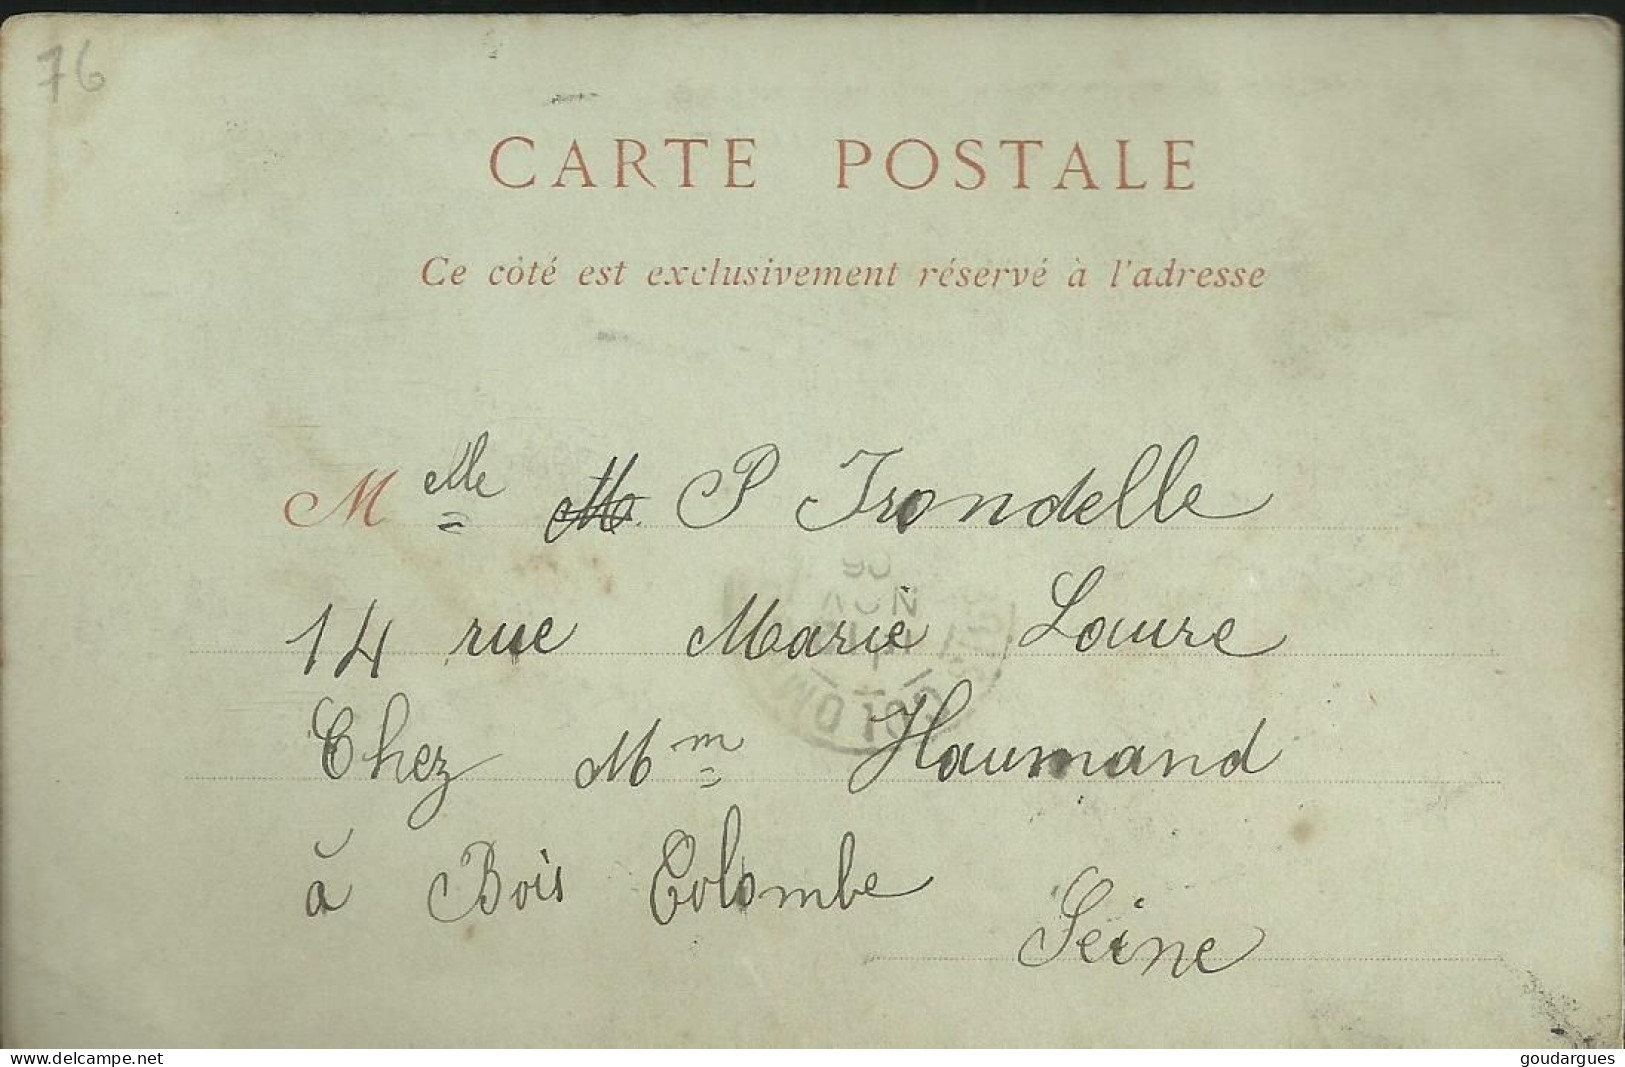 76
CARTE POSTALE
Ce côté est exclusivement réservé à l'adresse
Melle M P Trondelle
14 rue Marie Laure
Chez Mm Haumand
à Bois Colombe
Seine
delcampe.net
goudargues